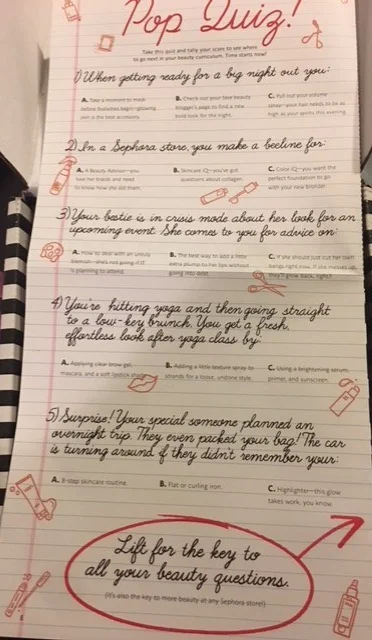 Pop Quiz!
Take this quiz and tally your score to see where
to go next in your beauty curriculum. Time starts now!
1) When getting ready for a big night out you:
A. Take a moment to mask
before festivities begin—glowing
skin is the best accessory.
B. Check out your fave beauty
blogger's page to find a new
bold look for the night.
C. Pull out your volume
spray—your hair needs to be as
high as your spirits this evening.
2) In a Sephora store, you make a beeline for:
A. A Beauty Advisor—you
love new brands and need
to know how she slays them.
B. Skincare IQ—you've got
questions about collagen.
C. Color IQ—you want the
perfect foundation to go
with your new bronzer.
3) Your bestie is in crisis mode about her look for an
upcoming event. She comes to you for advice on:
A. How to deal with an unruly
blemish—she's not going if it
is planning to attend.
B. The best way to add a little
extra plump to her lips without
going into debt.
C. If she should just cut her own
bangs right now. If she messes up,
they'll grow back, right?
4) You're hitting yoga and then going straight
to a low-key brunch. You get a fresh,
effortless look after yoga class by:
A. Applying clear brow gel,
mascara, and a soft lipstick
B. Adding a little texture spray to
strands for a loose, undone style.
C. Using a brightening serum,
primer, and sunscreen.
5) Surprise! Your special someone planned an
overnight trip. They even packed your bag! The car
is turning around if they didn't remember your:
A. 8-step skincare routine.
B. Flat or curling iron.
C. Highlighter—this glow
takes work, you know.
Lift for the key to
all your beauty questions.
(It's also the key to more beauty at any Sephora store!)